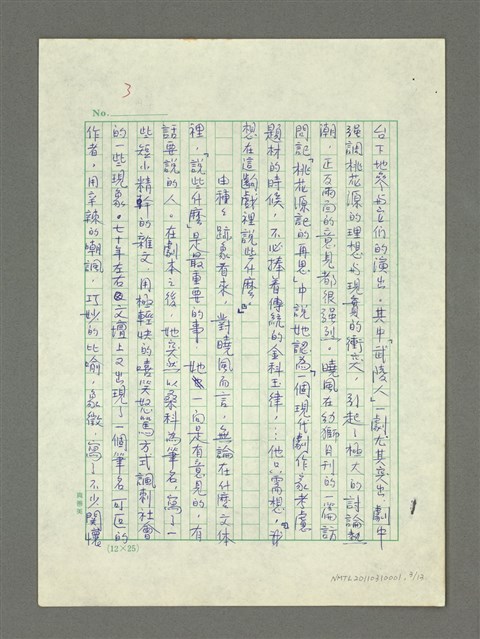 3
No.
台下地參與它們的演出。其中「武陵人」一劇尤其突出，劇中
強調桃花源的理想與現實的衝突，引起了極大的討論熱
潮，正反兩面的意見都很強烈，曉風在幼獅月刊的一篇訪
問記「桃花源記的再思」中說她認為「一個現代劇作家考慮
題材的時候，不必捧着傳統的金科玉律，…他只需想，『我
想在這齣戲裡說些什麼』。」
由種種跡象看來，對曉風而言，無論在什麼文体
裡，「說些什麼」是最重要的事，她一向是有意見的，有
話要說的人。在劇本之後，她突然以桑科為筆名，寫了一
些短小精幹的雜文，用極輕快的嘻笑怒罵方式諷刺社會
的一些現象。七十年左右文壇上又出現了一個筆名可叵的
作者，用辛辣的嘲諷，巧妙的比喻，象徵，寫了不少関懷
(12×25)
NMTL20110310001, 3/13